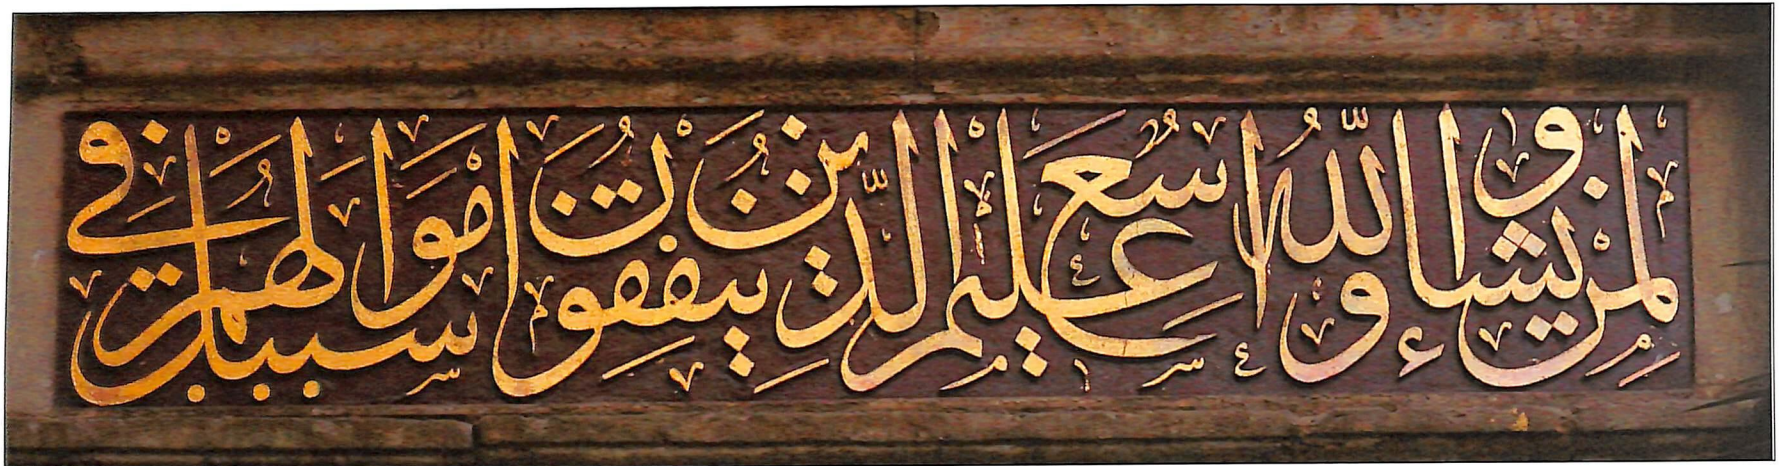 لمن يشاء والله واسع عليم الذين ينفقون اموالهم في سبيل